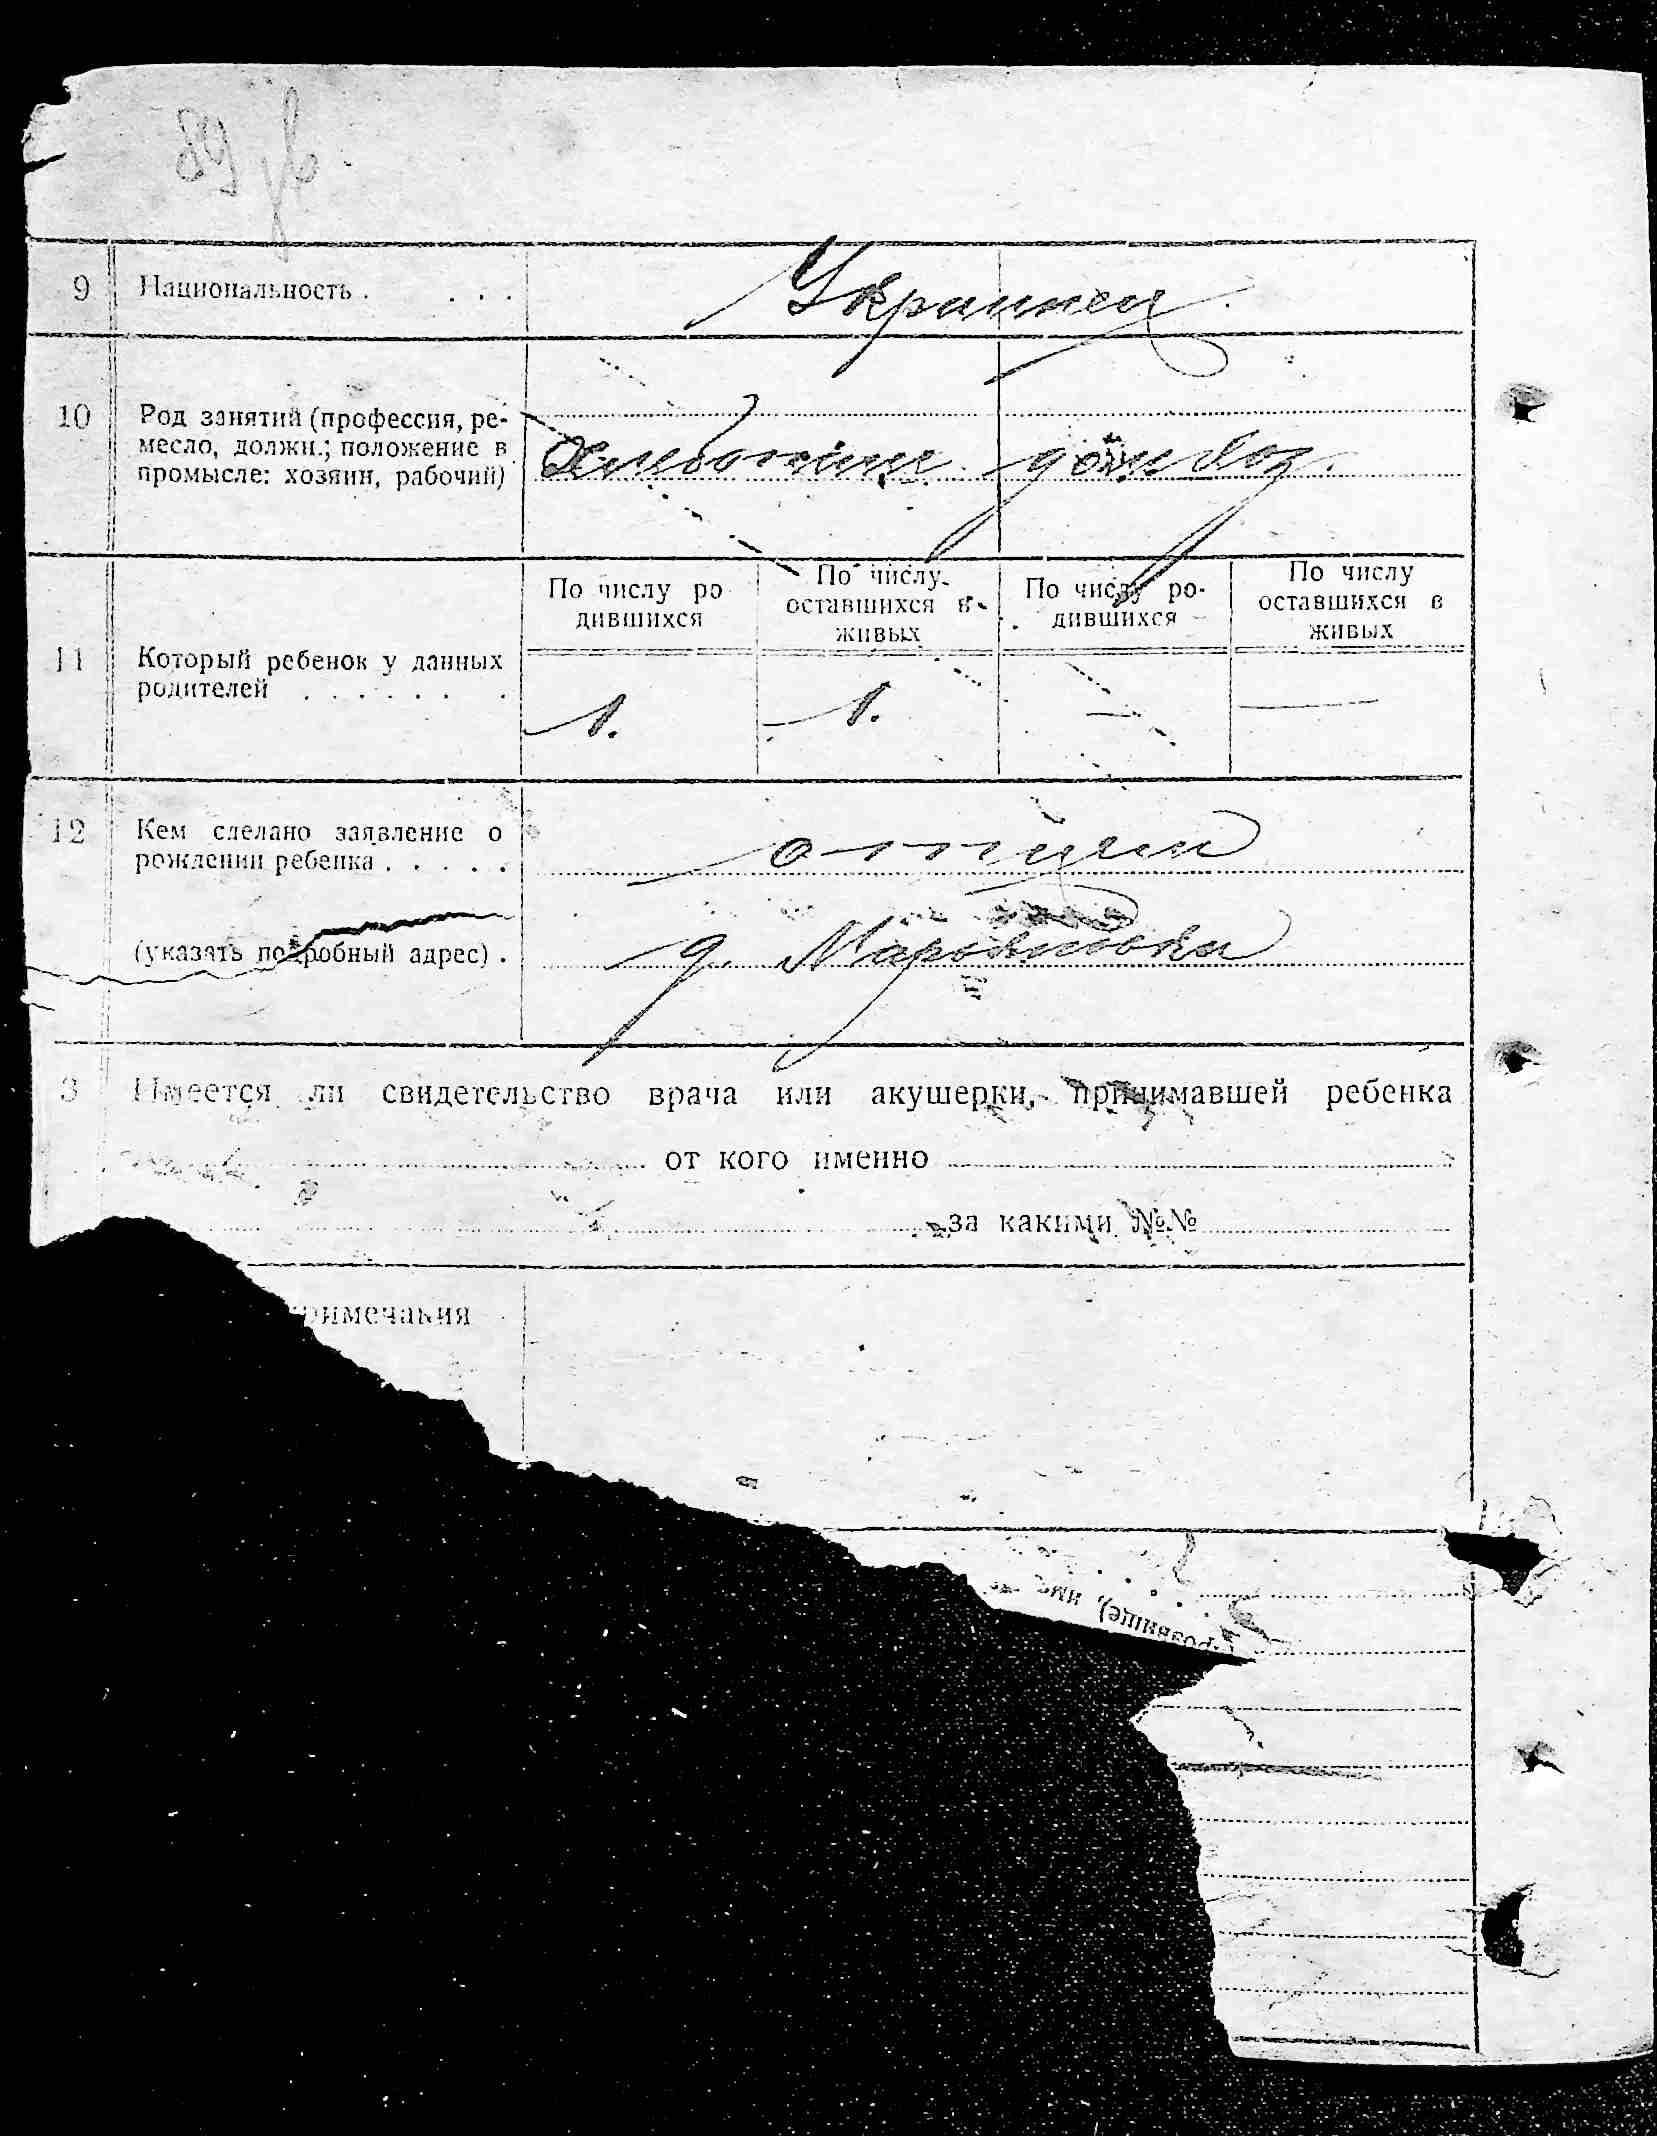 89
9 Национальность . . . . Украинец
10 Род занятий (профессия, ре-
месло, должн.; положение в
промысле: хозяин, рабочий)
По числу ро
дившихся
По числу
оставшихся в
живых
По числу ро-
дившихся
По числу
оставшихся в
живых
11 Который ребенок у данных
родителей . . . . . . .
1. 1. — —
12 Кем сделано заявление о
рождении ребенка . . . . . отцем
(указать подробный адрес) .
3 Имеется ли свидетельство врача или акушерки, принимавшей ребенка
от кого именно
за какими №№
римечания